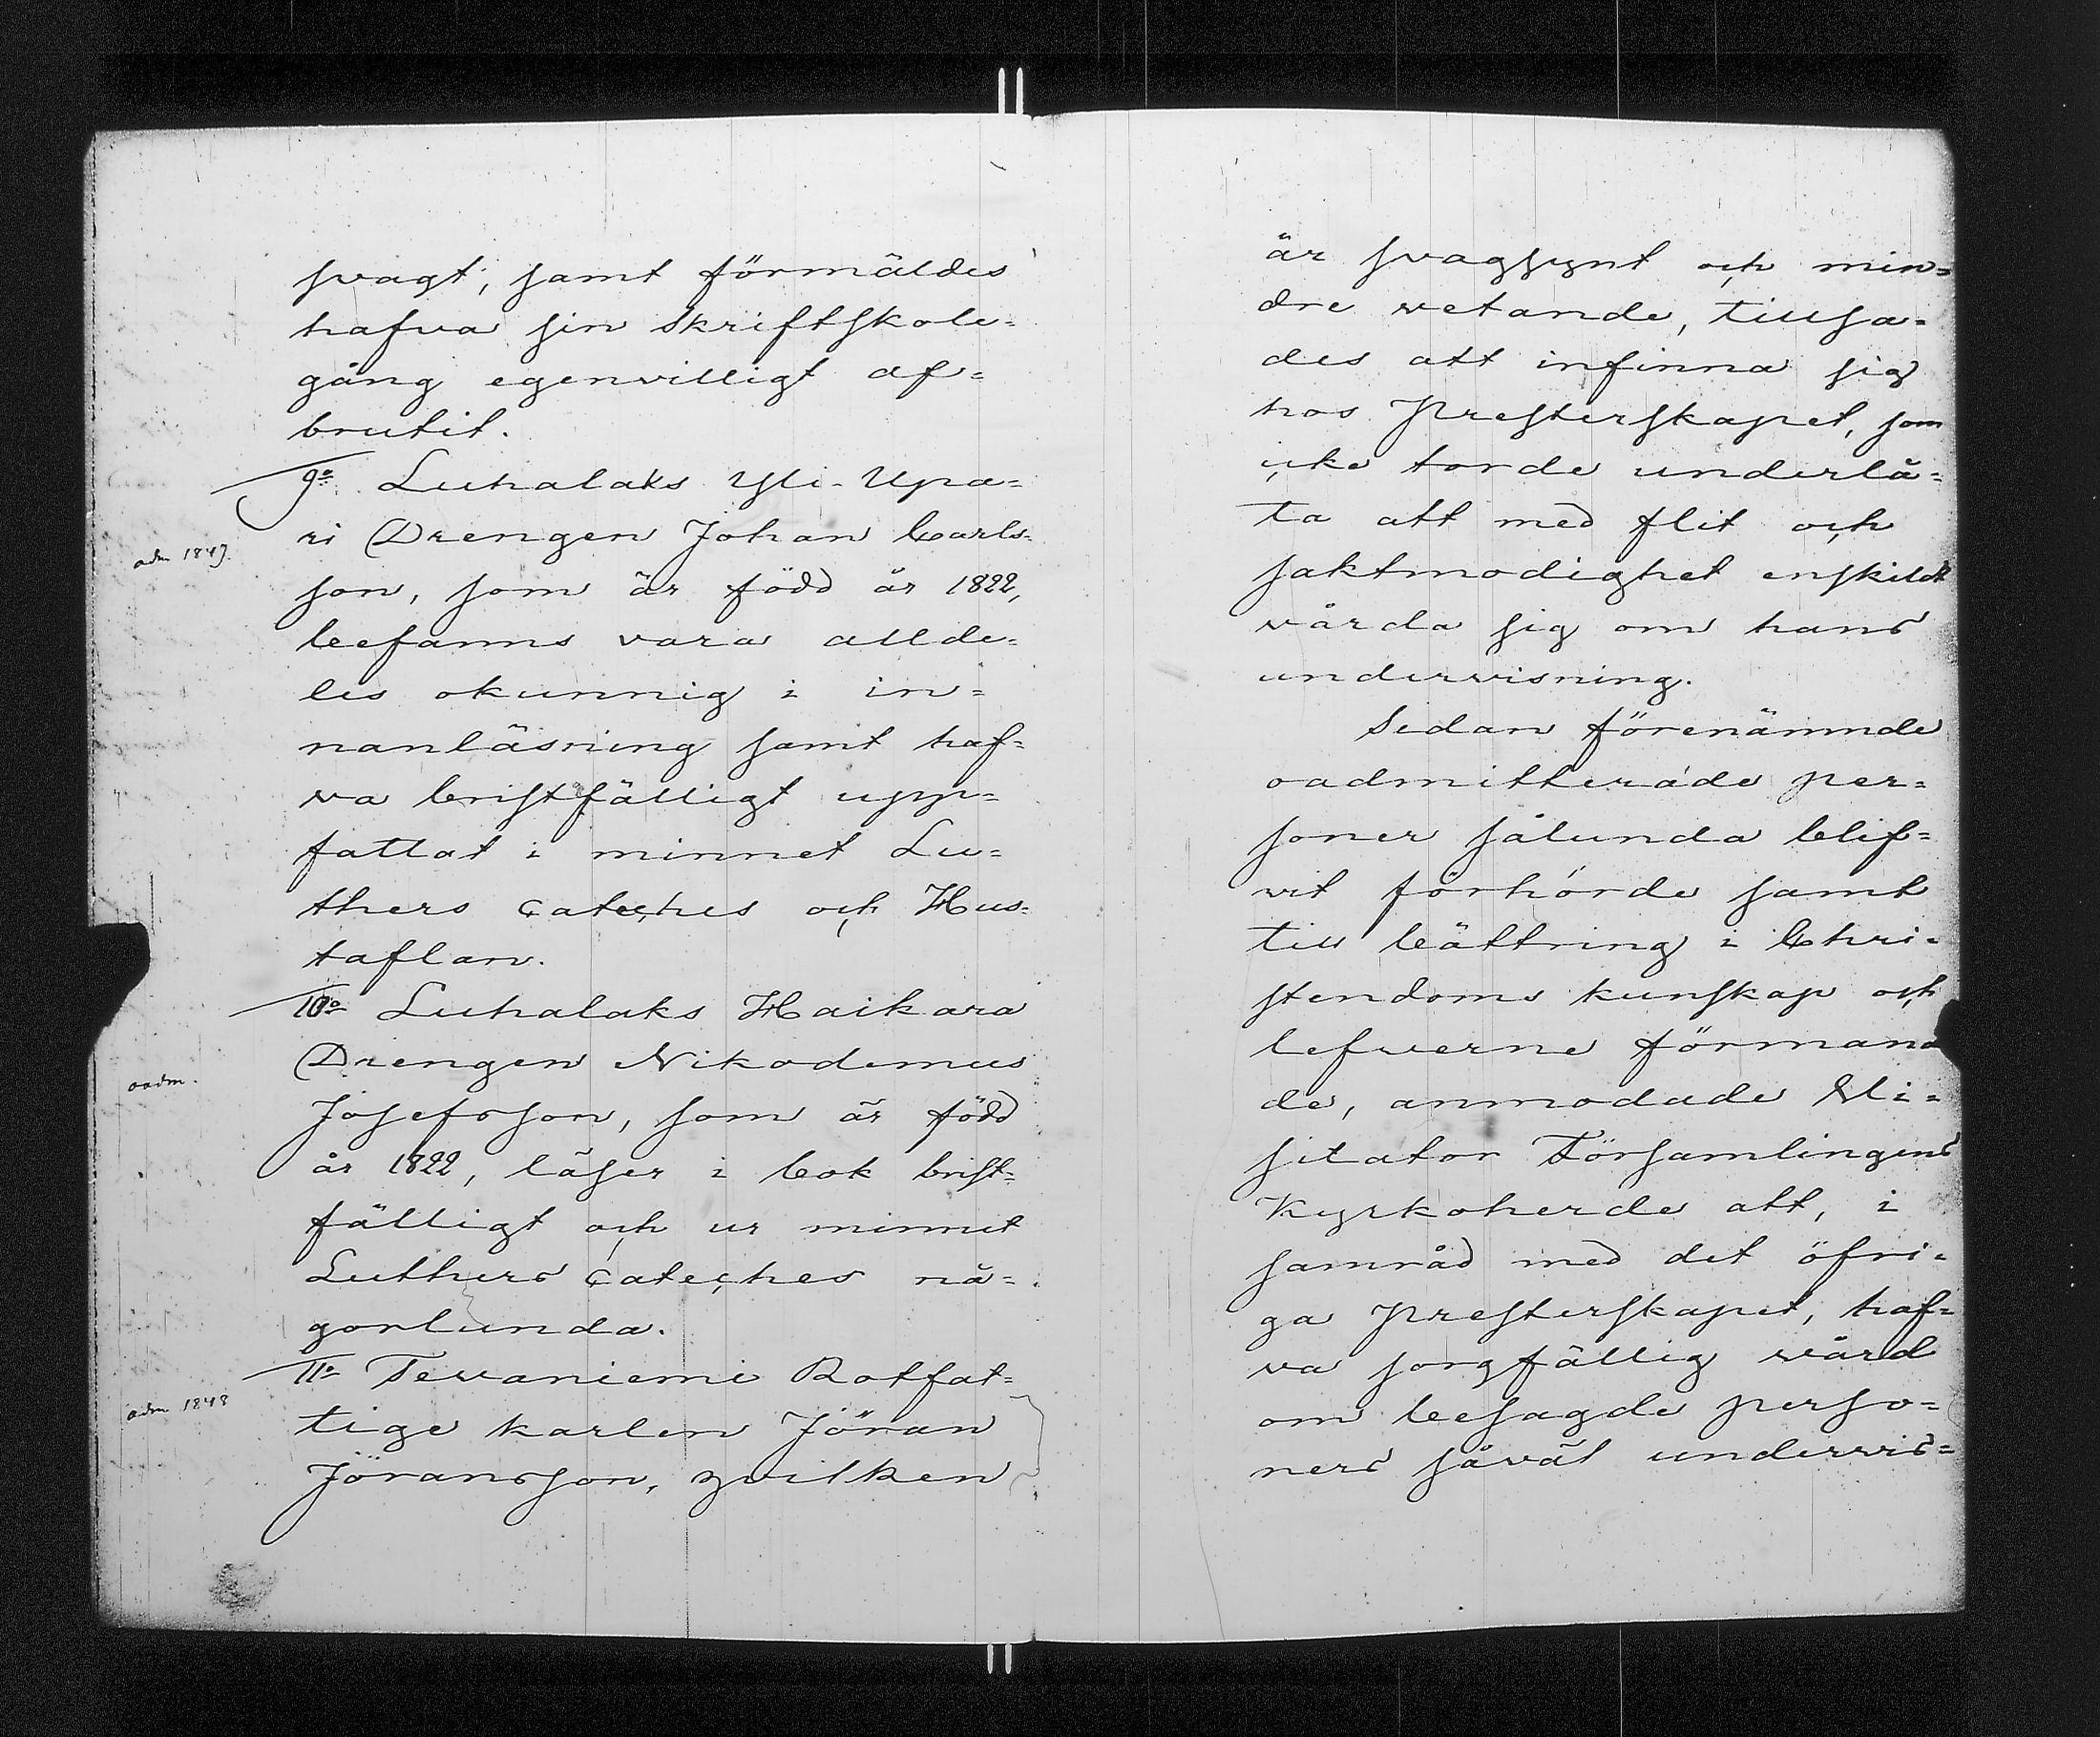 svagt, samt förmäldes
hafva sin Skriftskole=
gång egenvilligt af=
brutit.
9:o Luhalaks Yli-Upa=
ri Drengen Johan Carls=
adm 1847.
son, som är född år 1822,
befanns vara allde=
les okunnig i in=
nanläsning samt haf=
va bristfälligt upp=
fattat i minnet Lu=
thers Cateches och Hus=
taflan.
10:o Luhalaks Haikara
Drengen Nikodemus
oadm.
Josefsson, som är född
år 1822, läser i bok brist=
fälligt och ur minnet
Luthers Cateches nå=
gorlunda.
11:o Tervaniemi Rotfat=
adm 1848
tige karlen Jöran
Jöransson, hvilken
är svagsynt och min=
dre vetande, tillsa=
des att infinna sig
hos Presterskapet, som
icke torde underlå=
ta att med flit och
saktmodighet enskildt
vårda sig om hans
undervisning.
Sedan förenämnde
oadmitterade per=
soner sålunda blif=
vit förhörde samt
till bättring i Chri=
stendoms kunskap och
lefverne förmana
de, anmodade Vi=
sitator Församlingens
Kyrkoherde att, i
samråd med det öfri=
ga Presterskapet, haf=
va sorgfällig vård
om besagde perso=
ners såväl undervis=